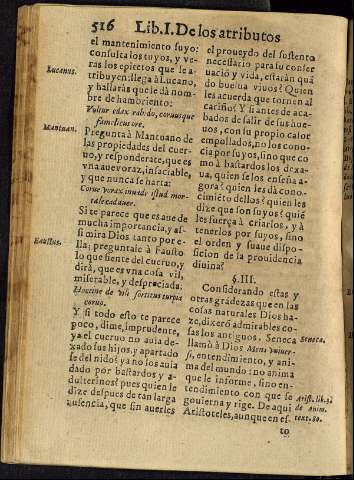 516 Lib. I. De los atributos
el mantenimiento suyo:
consulta los tuyos, y ve-
ràs los epictetos que le a-
Lucanus.
tribuyen: llega à Lucano,
y hallaràs que le dà nom-
bre de hambriento:
Vultur edax rabido, coruusque
famelicus ore.
Mantuan.
Preguntà à Mantuano de
las propiedades del cuer-
uo, y responderate, que es
vna aue voraz, insaciable,
y que nunca se harta:
Corue vorax inuedè istud mor-
tale cadauer.
Si te parece que es aue de
mucha importancia, y as-
si mira Dios tanto por e-
Faustus.
lla; preguntale à Fausto
lo que siente del cueruo, y
dirà, que es vna cosa vil,
miserable, y despreciada:
coruo.
Y si todo esto te parece
poco, dime, imprudente,
ya el cueruo no auia de-
xado sus hijos, y apartado
se del nido? ya no los auia
dado por bastardos y a-
dulterinos? pues quien le
dize despues de tan larga
ausencia, que sin auerles
el proueydo del sustento
necessario para su conser
uacion y vida, estaràn quã
do buelua viuos? Quien
les acuerda que tornen al
cariño? Y si antes de aca-
bados de salir de sus hue-
uos, con su propio calor
empollados, no los cono-
cia por suyos, sino que co
mo à bastardos los dexa-
ua, quien se los enseña a-
gora? quien les dà cono-
cimiẽto dellos? quien les
dize que son suyos? quiẽ
les fuerça à criarlos, y à
tenerlos por suyos, sino
el orden y suaue dispo-
sicion de la prouidencia
diuina?
§. III.
Considerando estas y
otras grãdezas que en las
cosas naturales Dios ha-
ze, dixerõ admirables co-
sas los antiguos. Seneca
Seneca.
llamò à Dios Mens vniuer-
si, entendimiento, y ani-
ma del mundo: no anima
que le informe, sino en-
tendimiento con que se
Arist. lib. 3.
gouierna y rige. De aqui
de Anim.
Aristoteles, aunque en es-
text. 80.
to